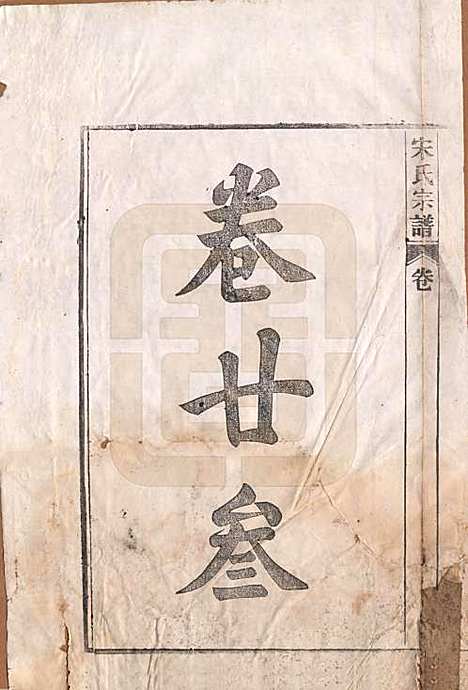 宋氏宗譜
卷
卷廿叁